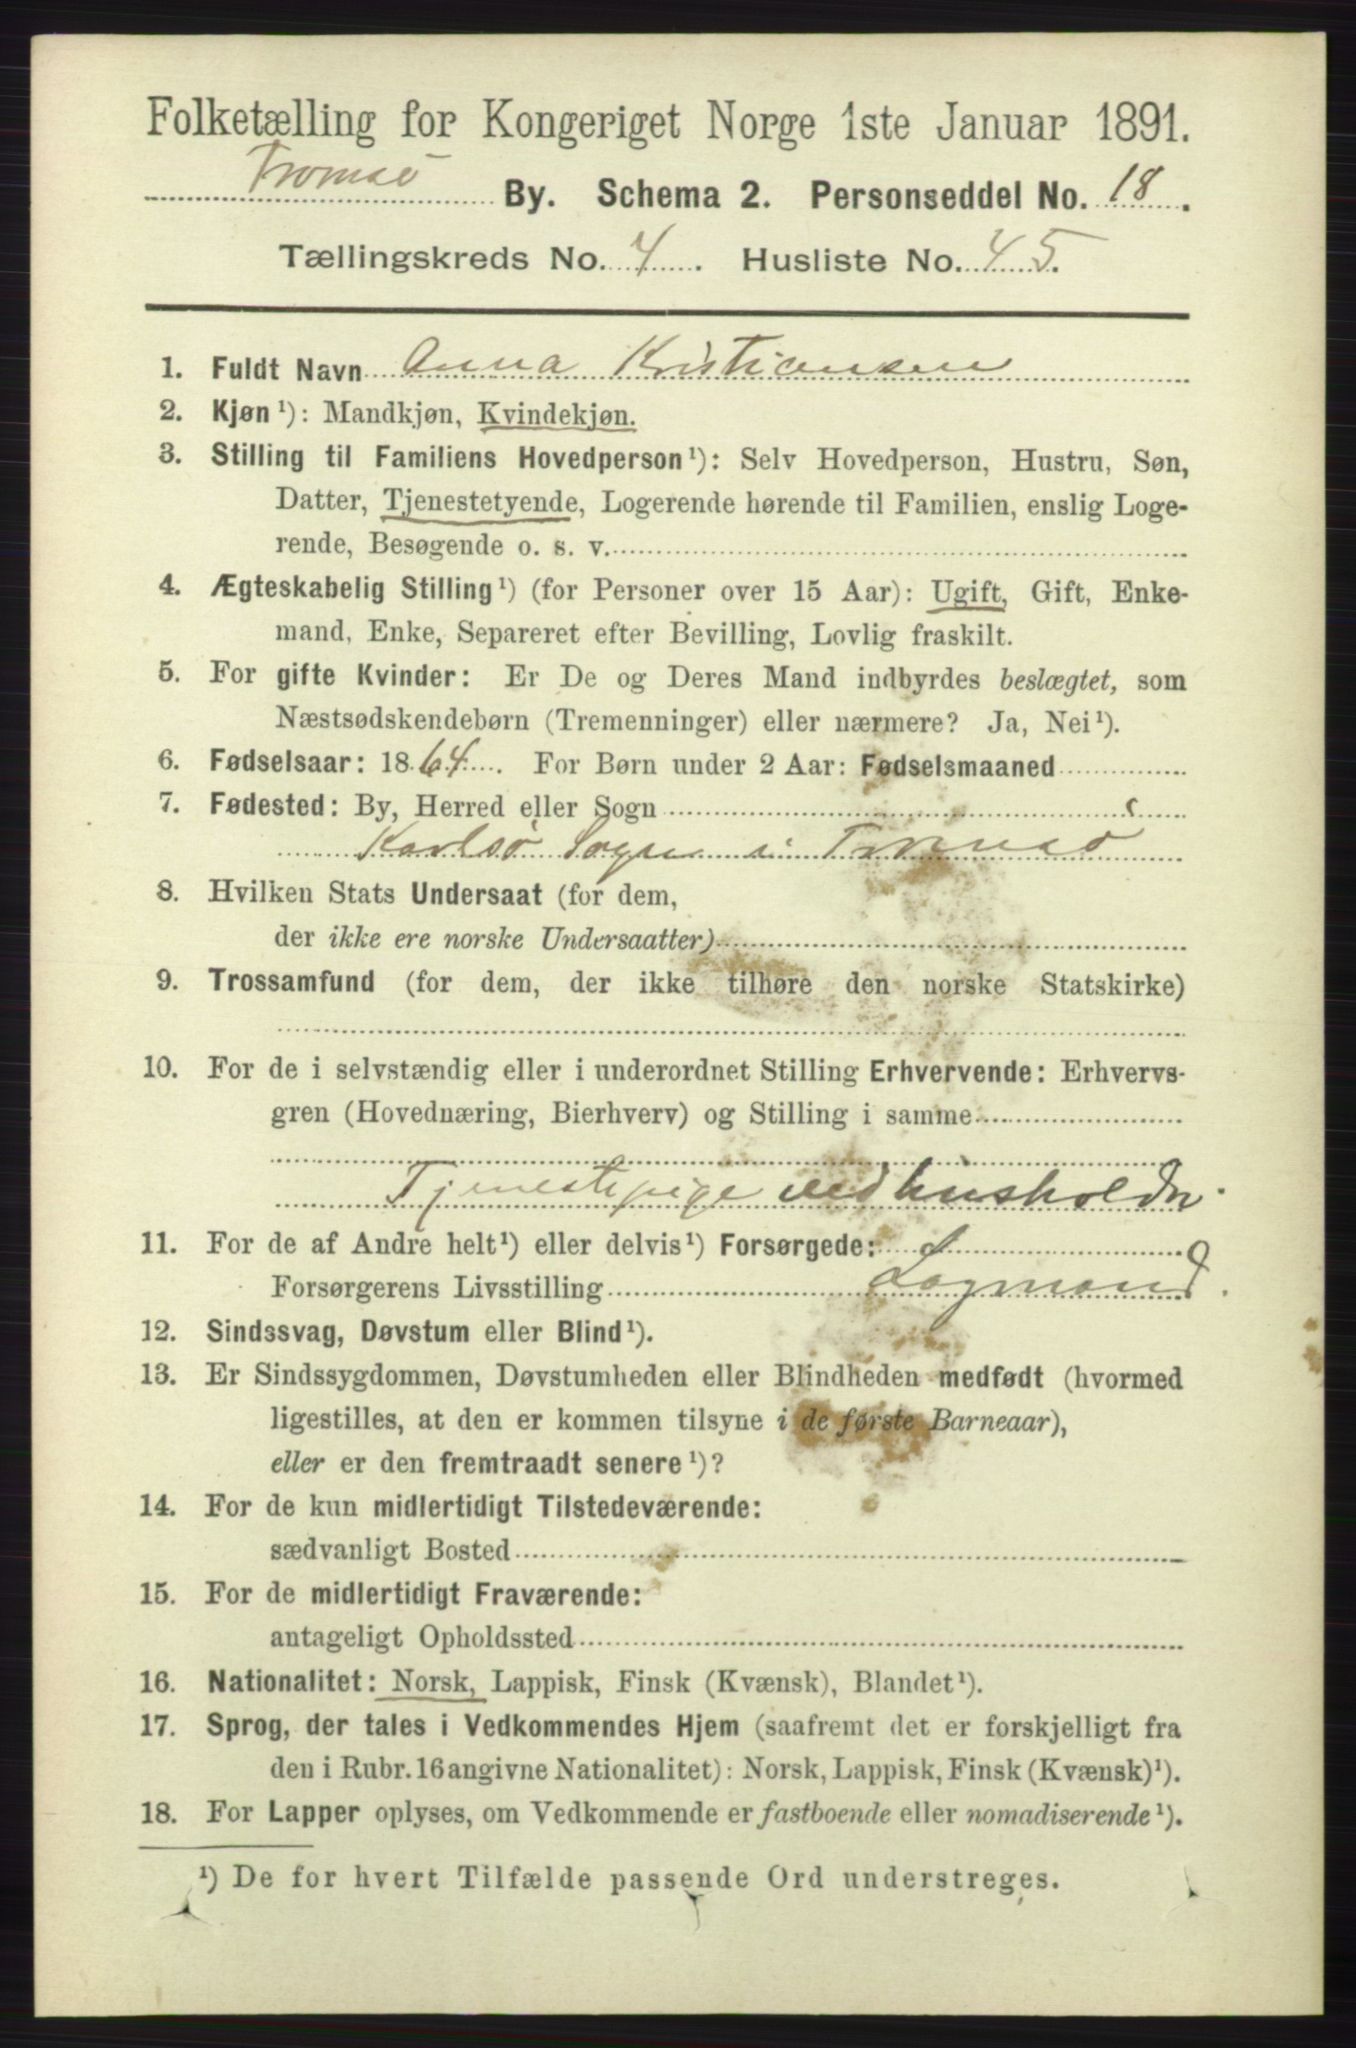 Folketælling for Kongeriget Norge 1ste Januar 1891.
Tromsö By. Schema 2. Personseddel No. 18.
Tællingskreds No. 4. Husliste No. 45.
1. Fuldt Navn Anna Kristiansen
2. Kjøn¹): Mandkjøn, Kvindekjøn.
3. Stilling til Familiens Hovedperson¹): Selv Hovedperson, Hustru, Søn,
Datter, Tjenestetyende, Logerende hørende til Familien, enslig Loge-
rende, Besøgende o. s. v.
4. Ægteskabelig Stilling¹) (for Personer over 15 Aar): Ugift, Gift, Enke-
mand, Enke, Separeret efter Bevilling, Lovlig fraskilt.
5. For gifte Kvinder: Er De og Deres Mand indbyrdes beslægtet, som
Næstsødskendebørn (Tremenninger) eller nærmere? Ja, Nei¹).
6. Fødselsaar: 1864. For Børn under 2 Aar: Fødselsmaaned
7. Fødested: By, Herred eller Sogn
Karlsö Sogn i Tromsö
8. Hvilken Stats Undersaat (for dem,
der ikke ere norske Undersaatter)
9. Trossamfund (for dem, der ikke tilhøre den norske Statskirke)
10. For de i selvstændig eller i underordnet Stilling Erhvervende: Erhvervs-
gren (Hovednæring, Bierhverv) og Stilling i samme
Tjenestepige ved husholdn.
11. For de af Andre helt¹) eller delvis¹) Forsørgede:
Forsørgerens Livsstilling
12. Sindssvag, Døvstum eller Blind¹).
13. Er Sindssygdommen, Døvstumheden eller Blindheden medfødt (hvormed
ligestilles, at den er kommen tilsyne i de første Barneaar),
eller er den fremtraadt senere¹)?
14. For de kun midlertidigt Tilstedeværende:
sædvanligt Bosted
15. For de midlertidigt Fraværende:
antageligt Opholdssted
16. Nationalitet: Norsk, Lappisk, Finsk (Kvænsk), Blandet¹).
17. Sprog, der tales i Vedkommendes Hjem (saafremt det er forskjelligt fra
den i Rubr. 16 angivne Nationalitet): Norsk, Lappisk, Finsk (Kvænsk)¹).
18. For Lapper oplyses, om Vedkommende er fastboende eller nomadiserende¹).
¹) De for hvert Tilfælde passende Ord understreges.